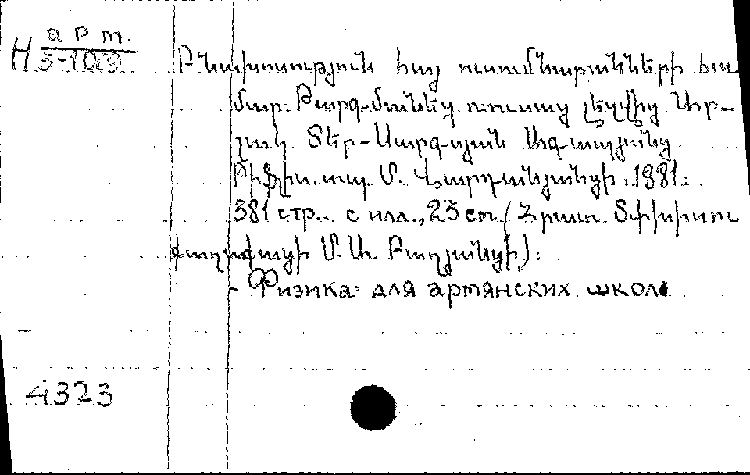 арт.
Н 5-103
Բնախօսութիւն հայ ուսումնարանների հա
մար. Թարգմանեց ռուսաց լեզվից Առ-
շակ Տէր-Սարգսյան Ագապյանց
Թիֆլիս. տպ. Մ. Վարդանյանցի. 1881.
381 стр.. с илл., 23 см. (Հրատ. Տփխիսու
քաղաքացի Մ. Ա. Բաղյանցի).
- Физика для армянских школ.
4323